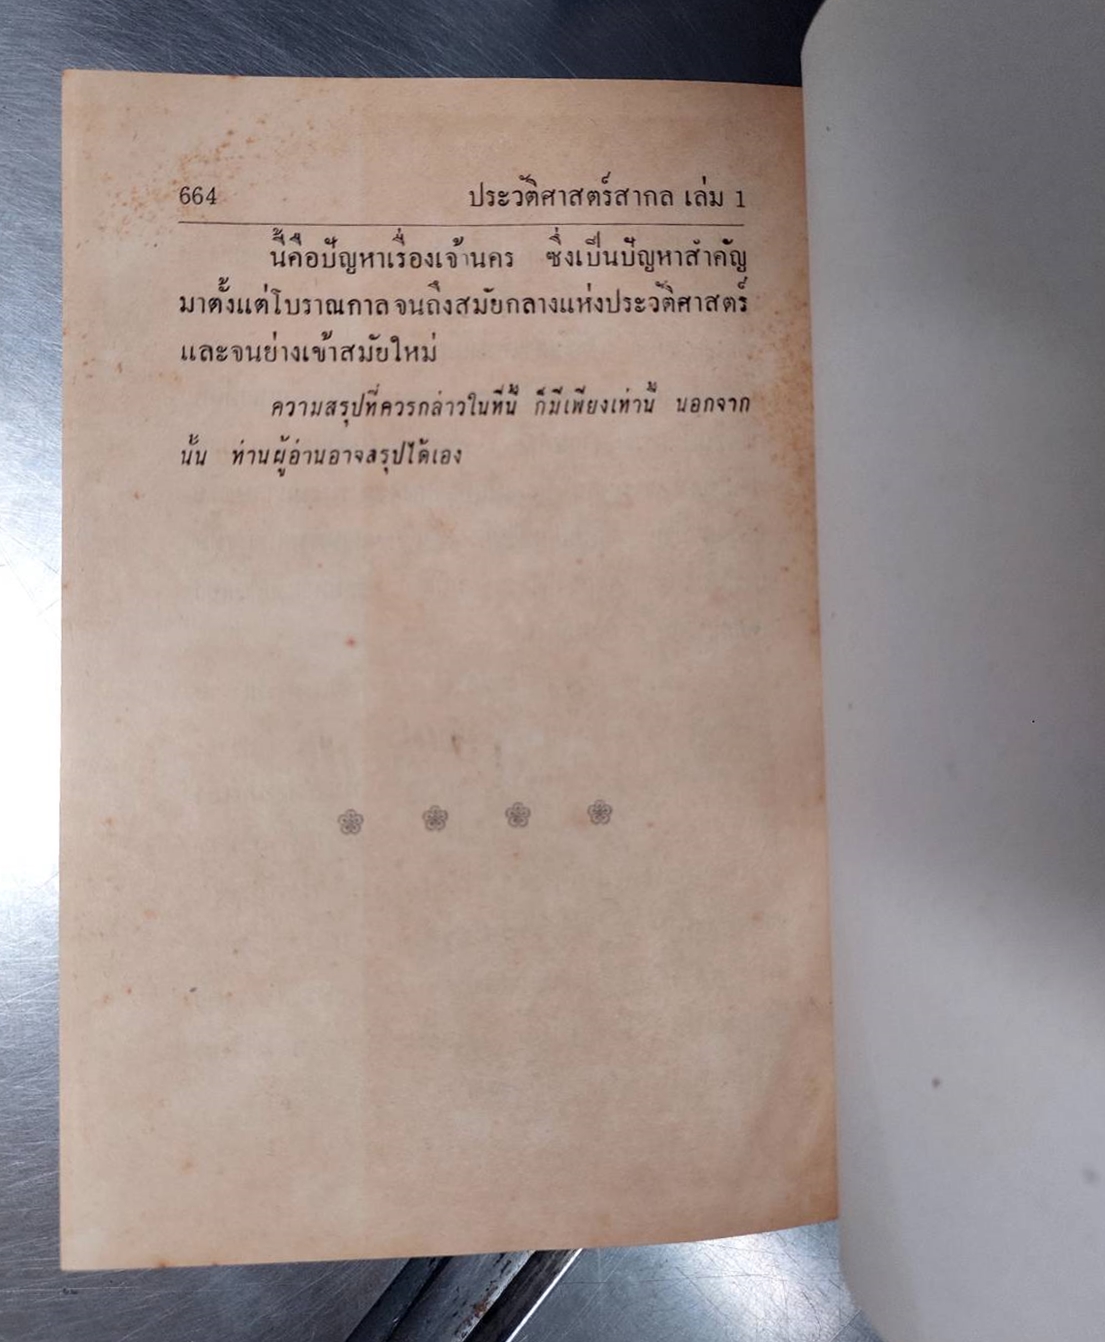 664 ประวัติศาสตร์สากล เล่ม 1
นี้คือปัญหาเรื่องเจ้านคร ซึ่งเป็นปัญหาสำคัญ
มาตั้งแต่โบราณกาล จนถึงสมัยกลางแห่งประวัติศาสตร์
และจนย่างเข้าสมัยใหม่
ความสรุปที่ควรกล่าวในที่นี้ ก็มีเพียงเท่านี้ นอกจาก
นั้น ท่านผู้อ่านอาจสรุปได้เอง